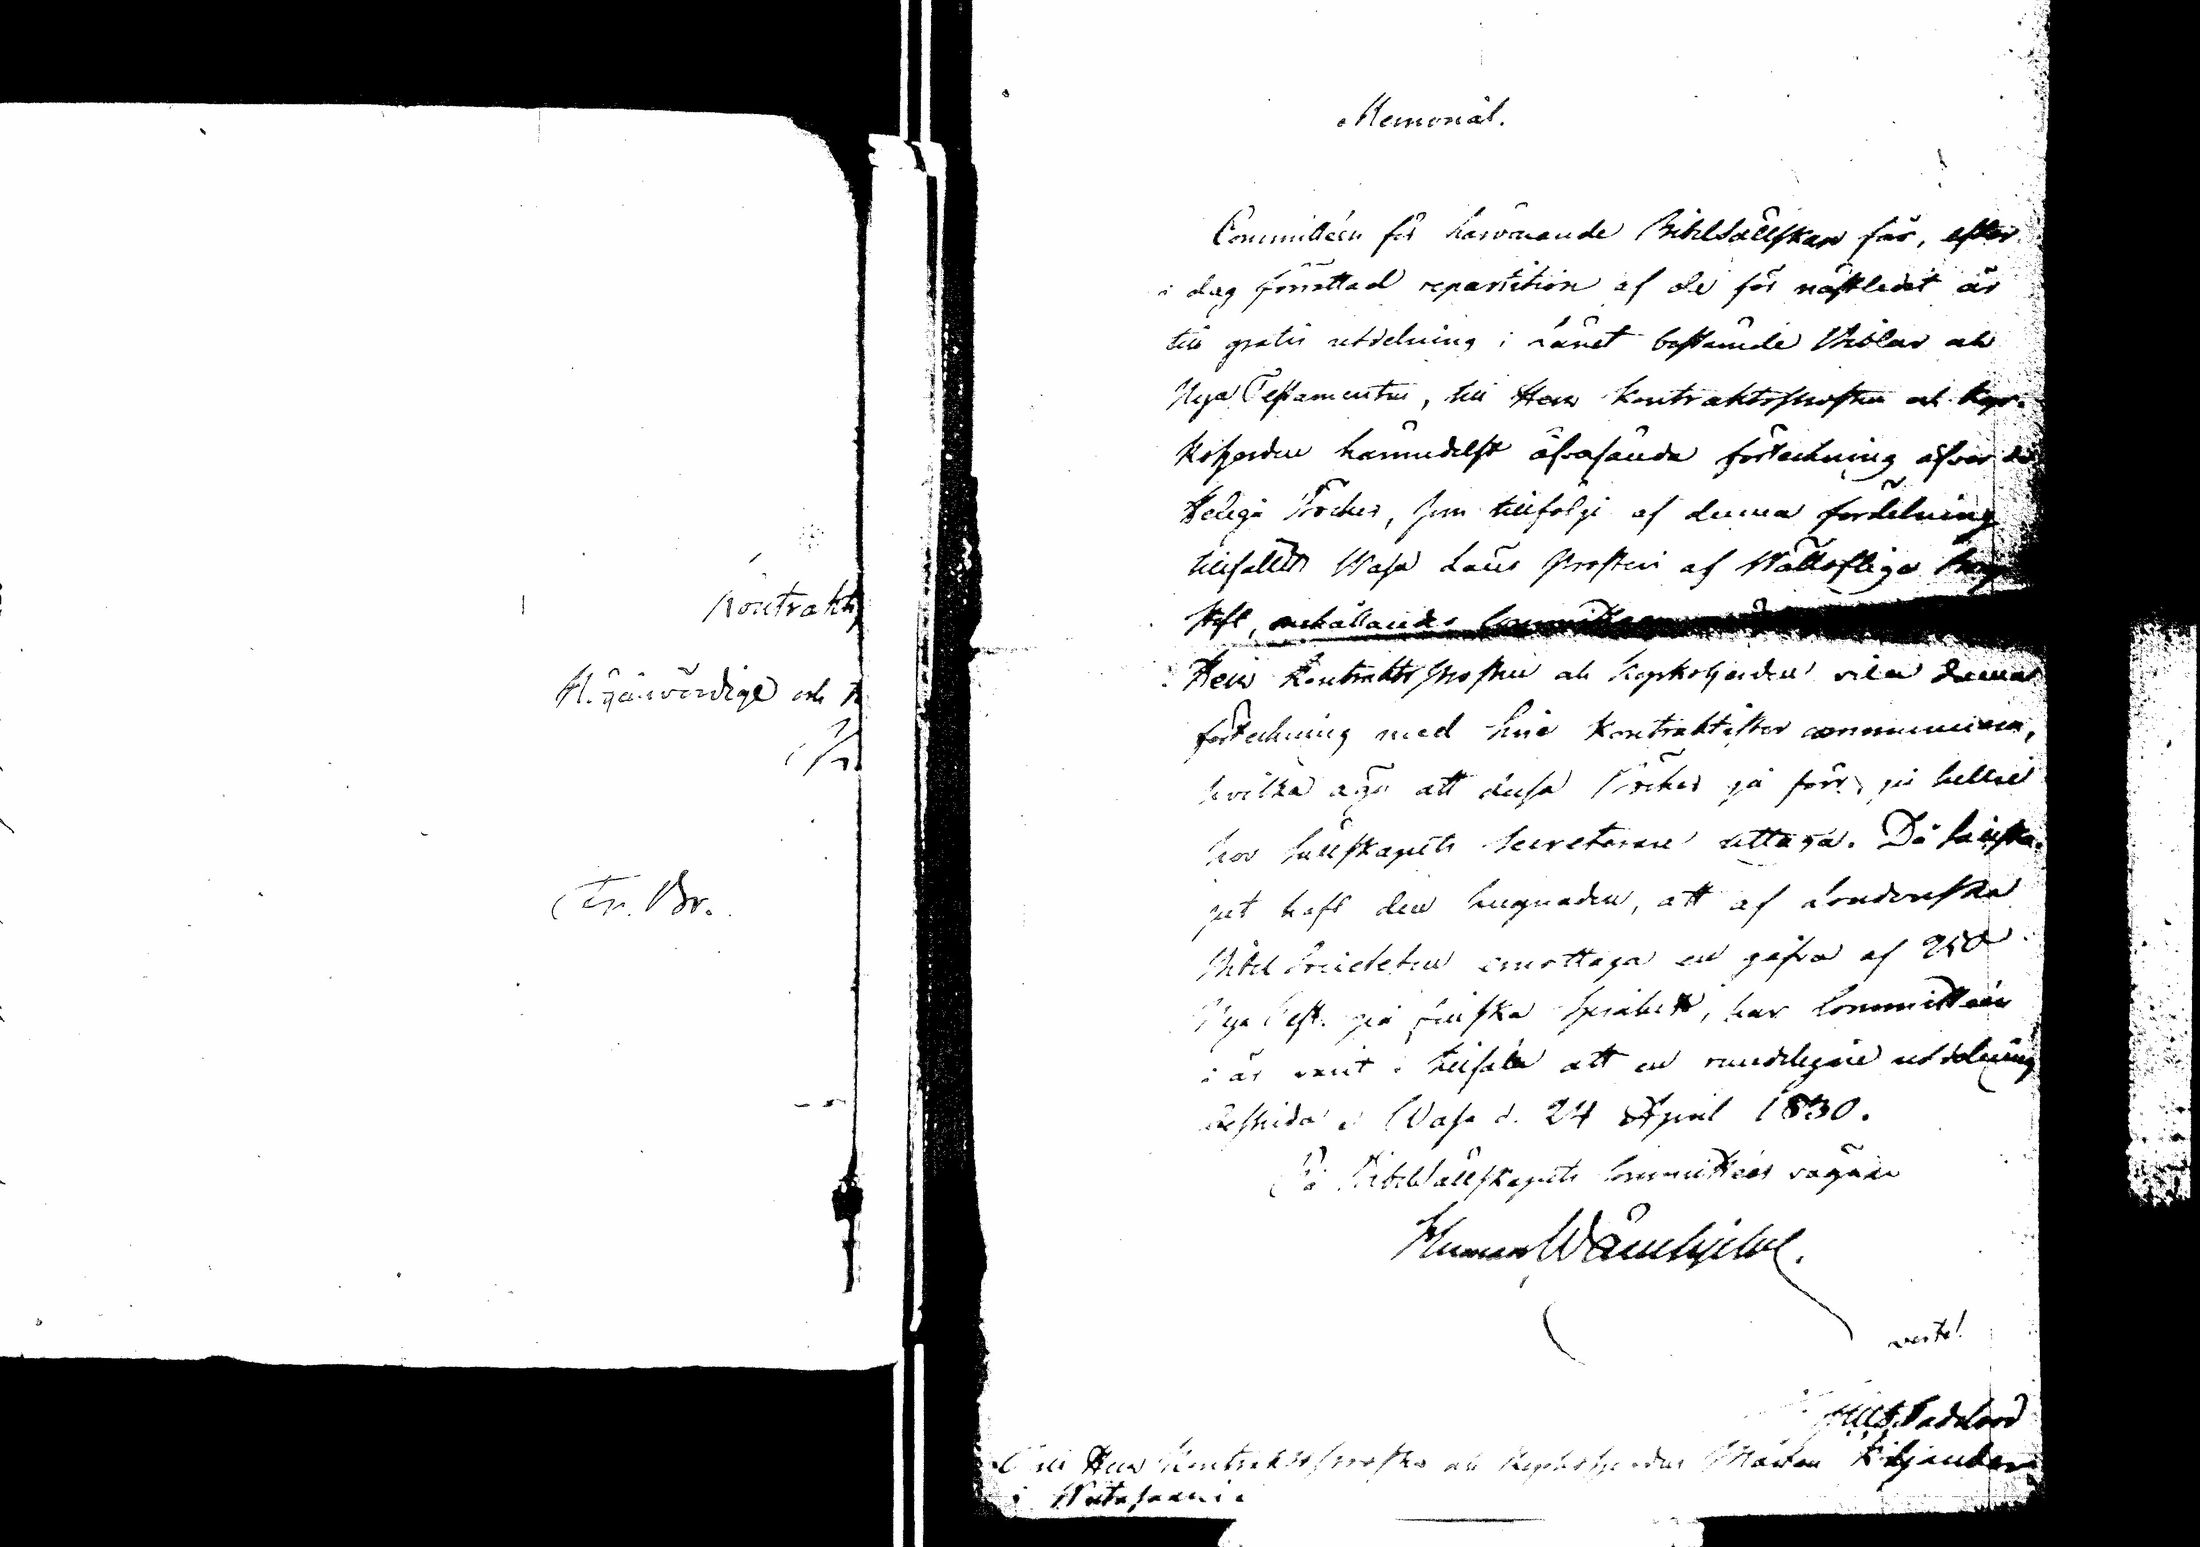 Kontrakts
H. ärevördige och
Tr. Br.
Memorial.
Committéen för härvarande Bibelsällskap får, efter
i dag förrättad repartition af de för nästledet år
till gratis utdelning i länet bestämde Biblar och
Nya Testamenter, till Herr Kontraktsprosten och Kyr-
koherden härmedelst öfversända förteckning öfver de
Heliga Böcker, som tillfölje af denna fördelning
tillfallit Wasa Läns Prosteri af Wällofliga
stift, anhållandes Committéen
Herr Kontraktsprosten och Kyrkoherden villa denna
förteckning med sine Kontraktister communicera,
hvilka äga att dessa Böcker ju förr, ju hellre
hos Sällskapets Secreterare uttaga. Då Sällska-
pet haft den hugnaden, att af Londonska
Bibel Societeten emottaga en gåfva af 250
Nya Test. på finska Språket, har Committéen
i år varit i tillfälle att en rundeligare utdelning
bestrida. Wasa d. 24 April 1830.
På Bibelsällskapets Committées vägnar
Herman Wänhjelm.
verte!
Till Herr Kontraktsprosten och Kyrkoherden Mårten Kiljander
i